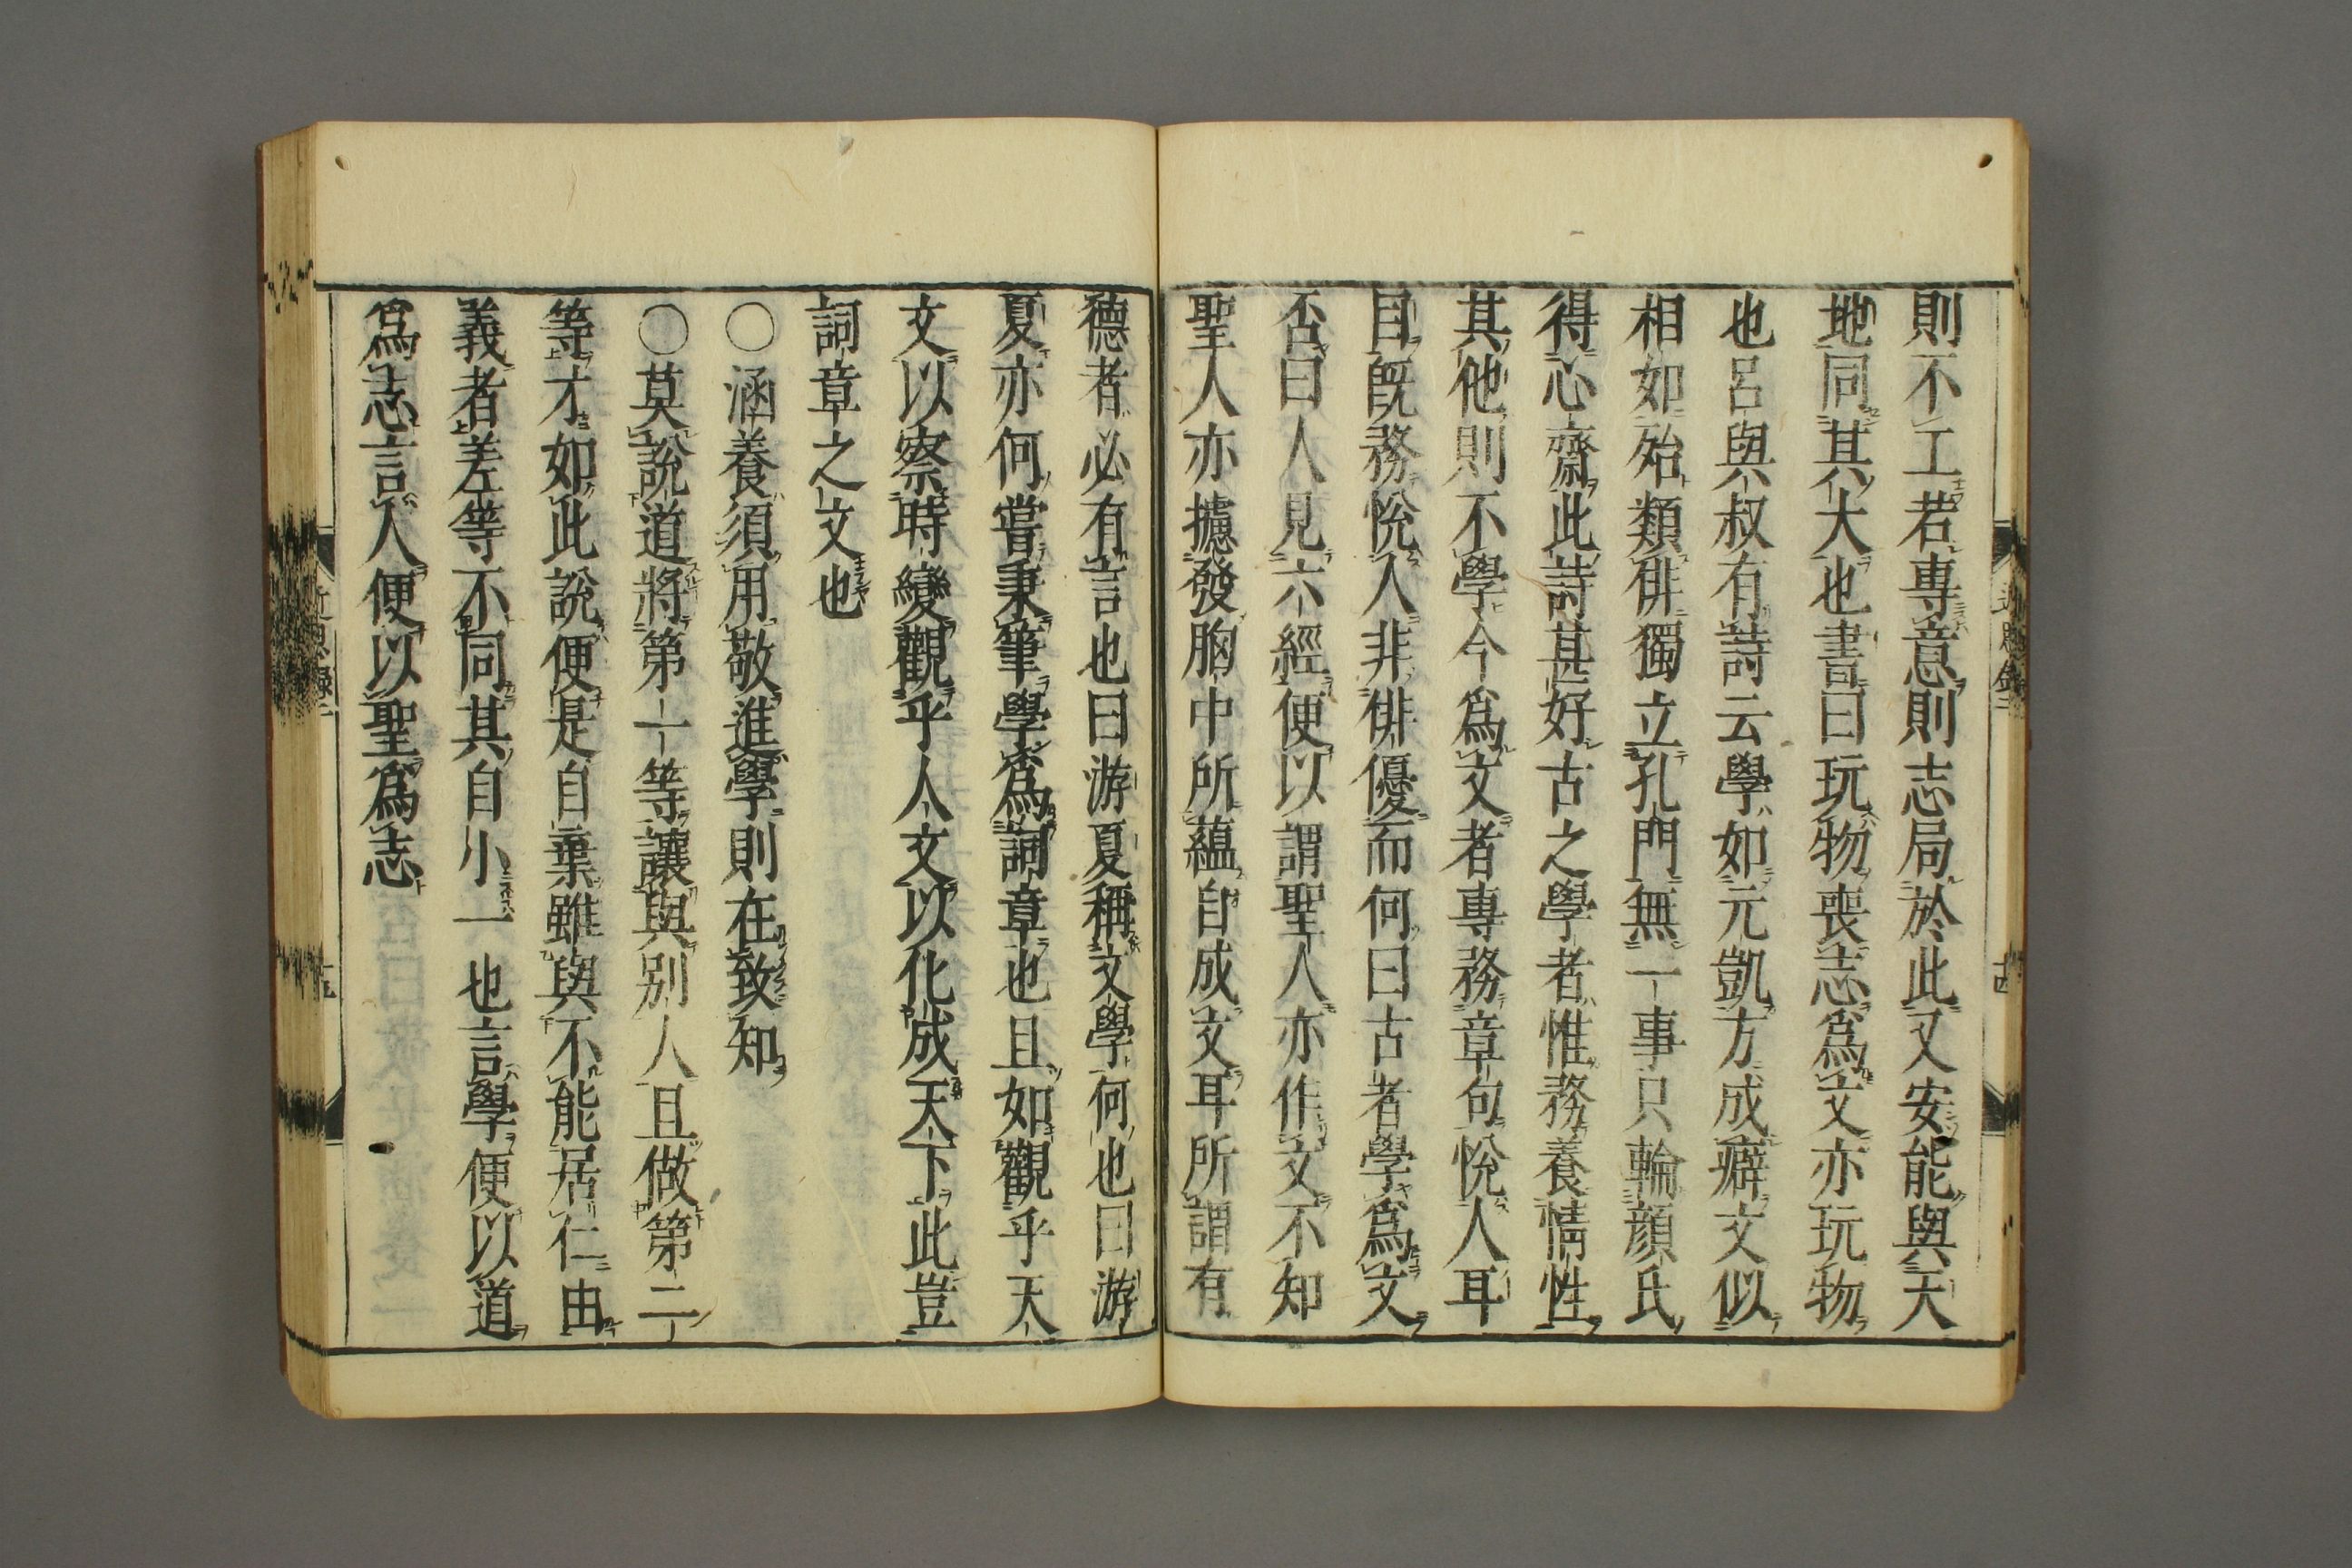 則不工若專意則志局於此又安能與天
地同其大也書曰玩物喪志爲文亦玩物
也呂與叔有詩云學如元凱方成癖文似
相如殆類俳獨立孔門無一事只輪顔氏
得心齋此詩甚好古之學者惟務養情性
其他則不學今爲文者專務章句悅人耳
目旣務悅人非俳優而何曰古者學爲文
否曰人見六經便以謂聖人亦作文不知
聖人亦攄發胸中所蘊自成文耳所謂有
德者必有言也曰游夏稱文學何也曰游
夏亦何嘗秉筆學爲詞章也且如觀乎天
文以察時變觀乎人文以化成天下此豈
詞章之文也
○涵養須用敬進學則在致知
○莫說道將第一等讓與別人且做第二
等才如此說便是自棄雖與不能居仁由
義者差等不同其自小一也言學便以道
爲志言人便以聖爲志